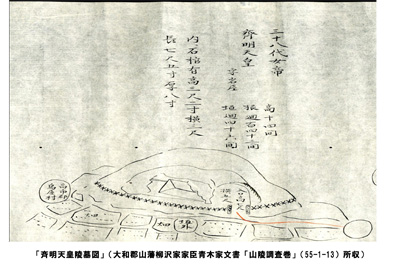 三十八代女帝
齊明天皇
字岩屋
高十四間
根廻百四十二間
垣廻四十六間
内ニ石棺有高三尺二寸横一尺
長七尺五寸厚八寸
高市郡
畑
畑
「斉明天皇陵墓図」(大和郡山藩柳沢家家臣青木家文書「山陵調査巻」(55-1-13)所収)